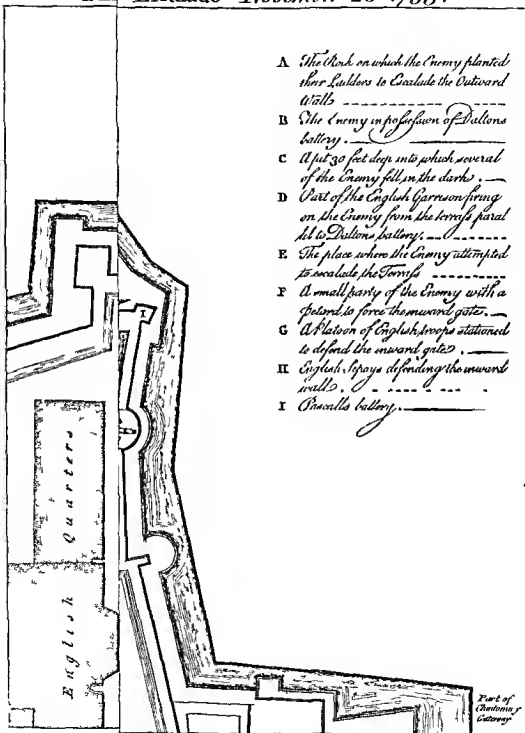 November 28 1753.
A The Rock on which the Enemy planted
their Ladders to Escalade the Outward
Wall
B The Enemy in possession of Daltons
battery.
C A pit 30 feet deep into which several
of the Enemy fell in the dark.
D Part of the English Garrison firing
on the Enemy from the terrass paral
lel to Daltons battery.
E The place where the Enemy attempted
to escalade the Terrass
F A small party of the Enemy with a
Petard to force the inward gate.
G A Platoon of English troops stationed
to defend the inward gate.
H English Sepoys defending the inward
wall.
I Pascalls battery.
English Quarters
Part of
Gateway